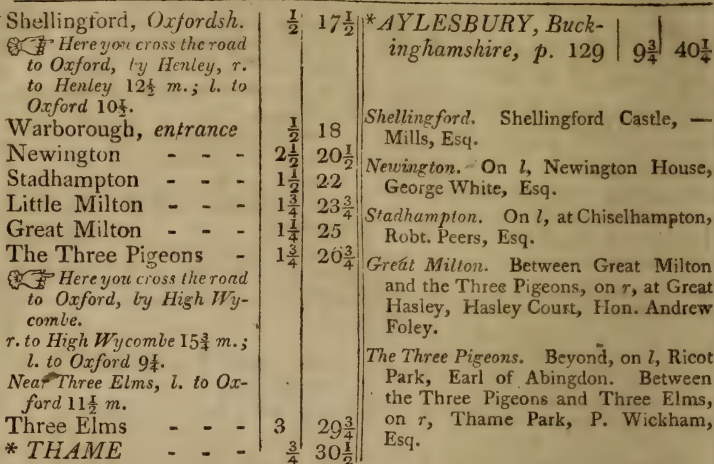 Shellingford, Oxfordsh. ½ 17½
☞ Here you cross the road
to Oxford, by Henley, r.
to Henley 12½ m.; l. to
Oxford 10½.
Warborough, entrance ½ 18
Newington - - - 2½ 20½
Stadhampton - - - 1½ 22
Little Milton - - - 1¾ 23¾
Great Milton - - - 1¼ 25
The Three Pigeons - 1¾ 26¾
☞ Here you cross the road
to Oxford, by High Wy-
combe.
r. to High Wycombe 15¾ m.;
l. to Oxford 9¼.
Near Three Elms, l. to Ox-
ford 11½ m.
Three Elms - - - 3 29¾
* THAME - - - ¾ 30½
*AYLESBURY, Buck-
inghamshire, p. 129 9¾ 40¼
Shellingford. Shellingford Castle, —
Mills, Esq.
Newington. On l, Newington House,
George White, Esq.
Stadhampton. On l, at Chiselhampton,
Robt. Peers, Esq.
Great Milton. Between Great Milton
and the Three Pigeons, on r, at Great
Hasley, Hasley Court, Hon. Andrew
Foley.
The Three Pigeons. Beyond, on l, Ricot
Park, Earl of Abingdon. Between
the Three Pigeons and Three Elms,
on r, Thame Park, P. Wickham,
Esq.